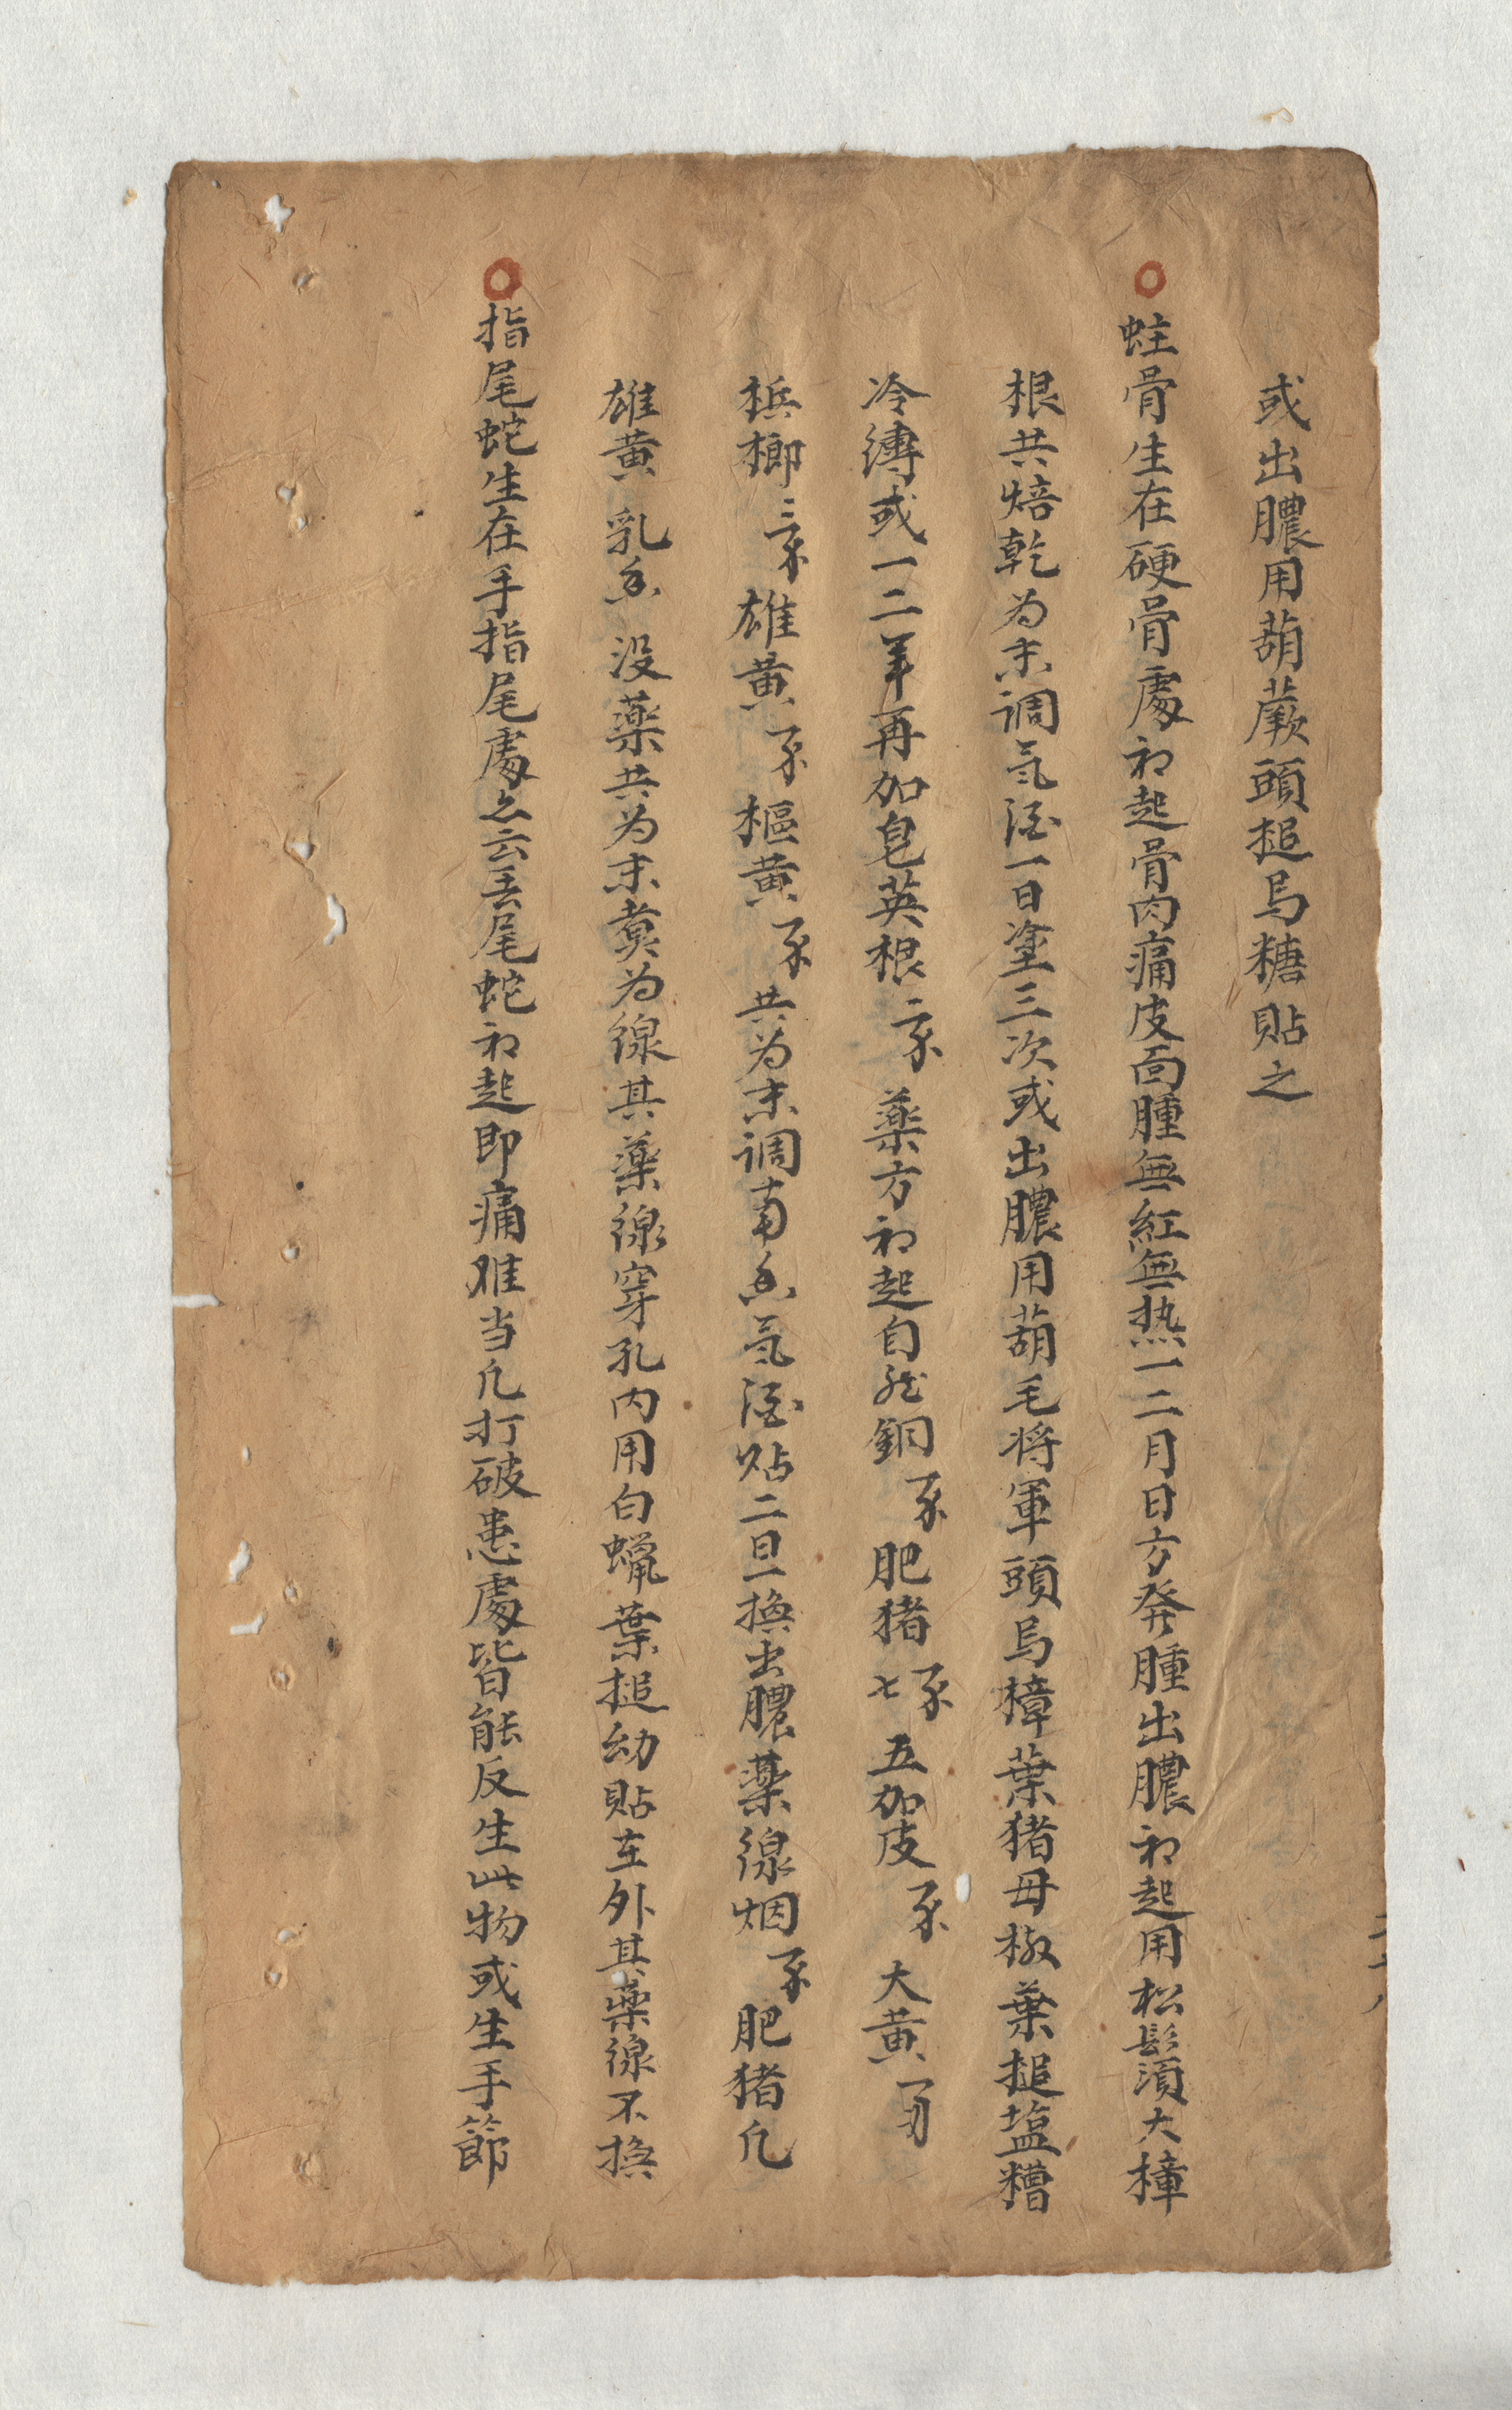 或出膿用葫蕨頭搥烏糖貼之
○蛀骨生在硬骨處初起骨肉痛皮面腫無紅無热一二月日方発腫出膿初起用松髟須大樟
根共焙乾为末调氣酒一日塗三次或出膿用葫毛将軍頭烏樟葉猪母椒葉搥塩糟
冷縳或一二年再加皂英根二不薬方初起自然銅不肥猪七不五加皮不大黄一
梹榔三不雄黄不樞黄不共为末调南香氣酒贴二日一換出膿薬線烟不肥猪凡
雄黄乳香没薬共为末糞为線其薬線穿孔内用白蠟葉搥幼貼在外其薬線不換
○指尾蛇生在手指尾處厶云丢尾蛇初起即痛难当凡打破患處皆能反生此物或生手節